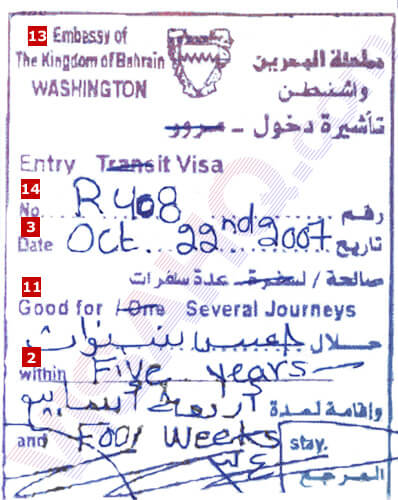 13 Embassy of
The Kingdom of Bahrain
WASHINGTON
مملكة البحرين
واشنطن
تأشيرة دخول - مرور
Entry Transit Visa
14
No. R408 رقم
3
Date Oct. 22nd 2007 تاريخ
صالحة / لسفرة عدة سفرات
11
Good for / One Several Journeys
خلال خمس سنوات
2
within Five years
وإقامة لمدة أربعة أسابيع
and Foor Weeks stay.
المرجع